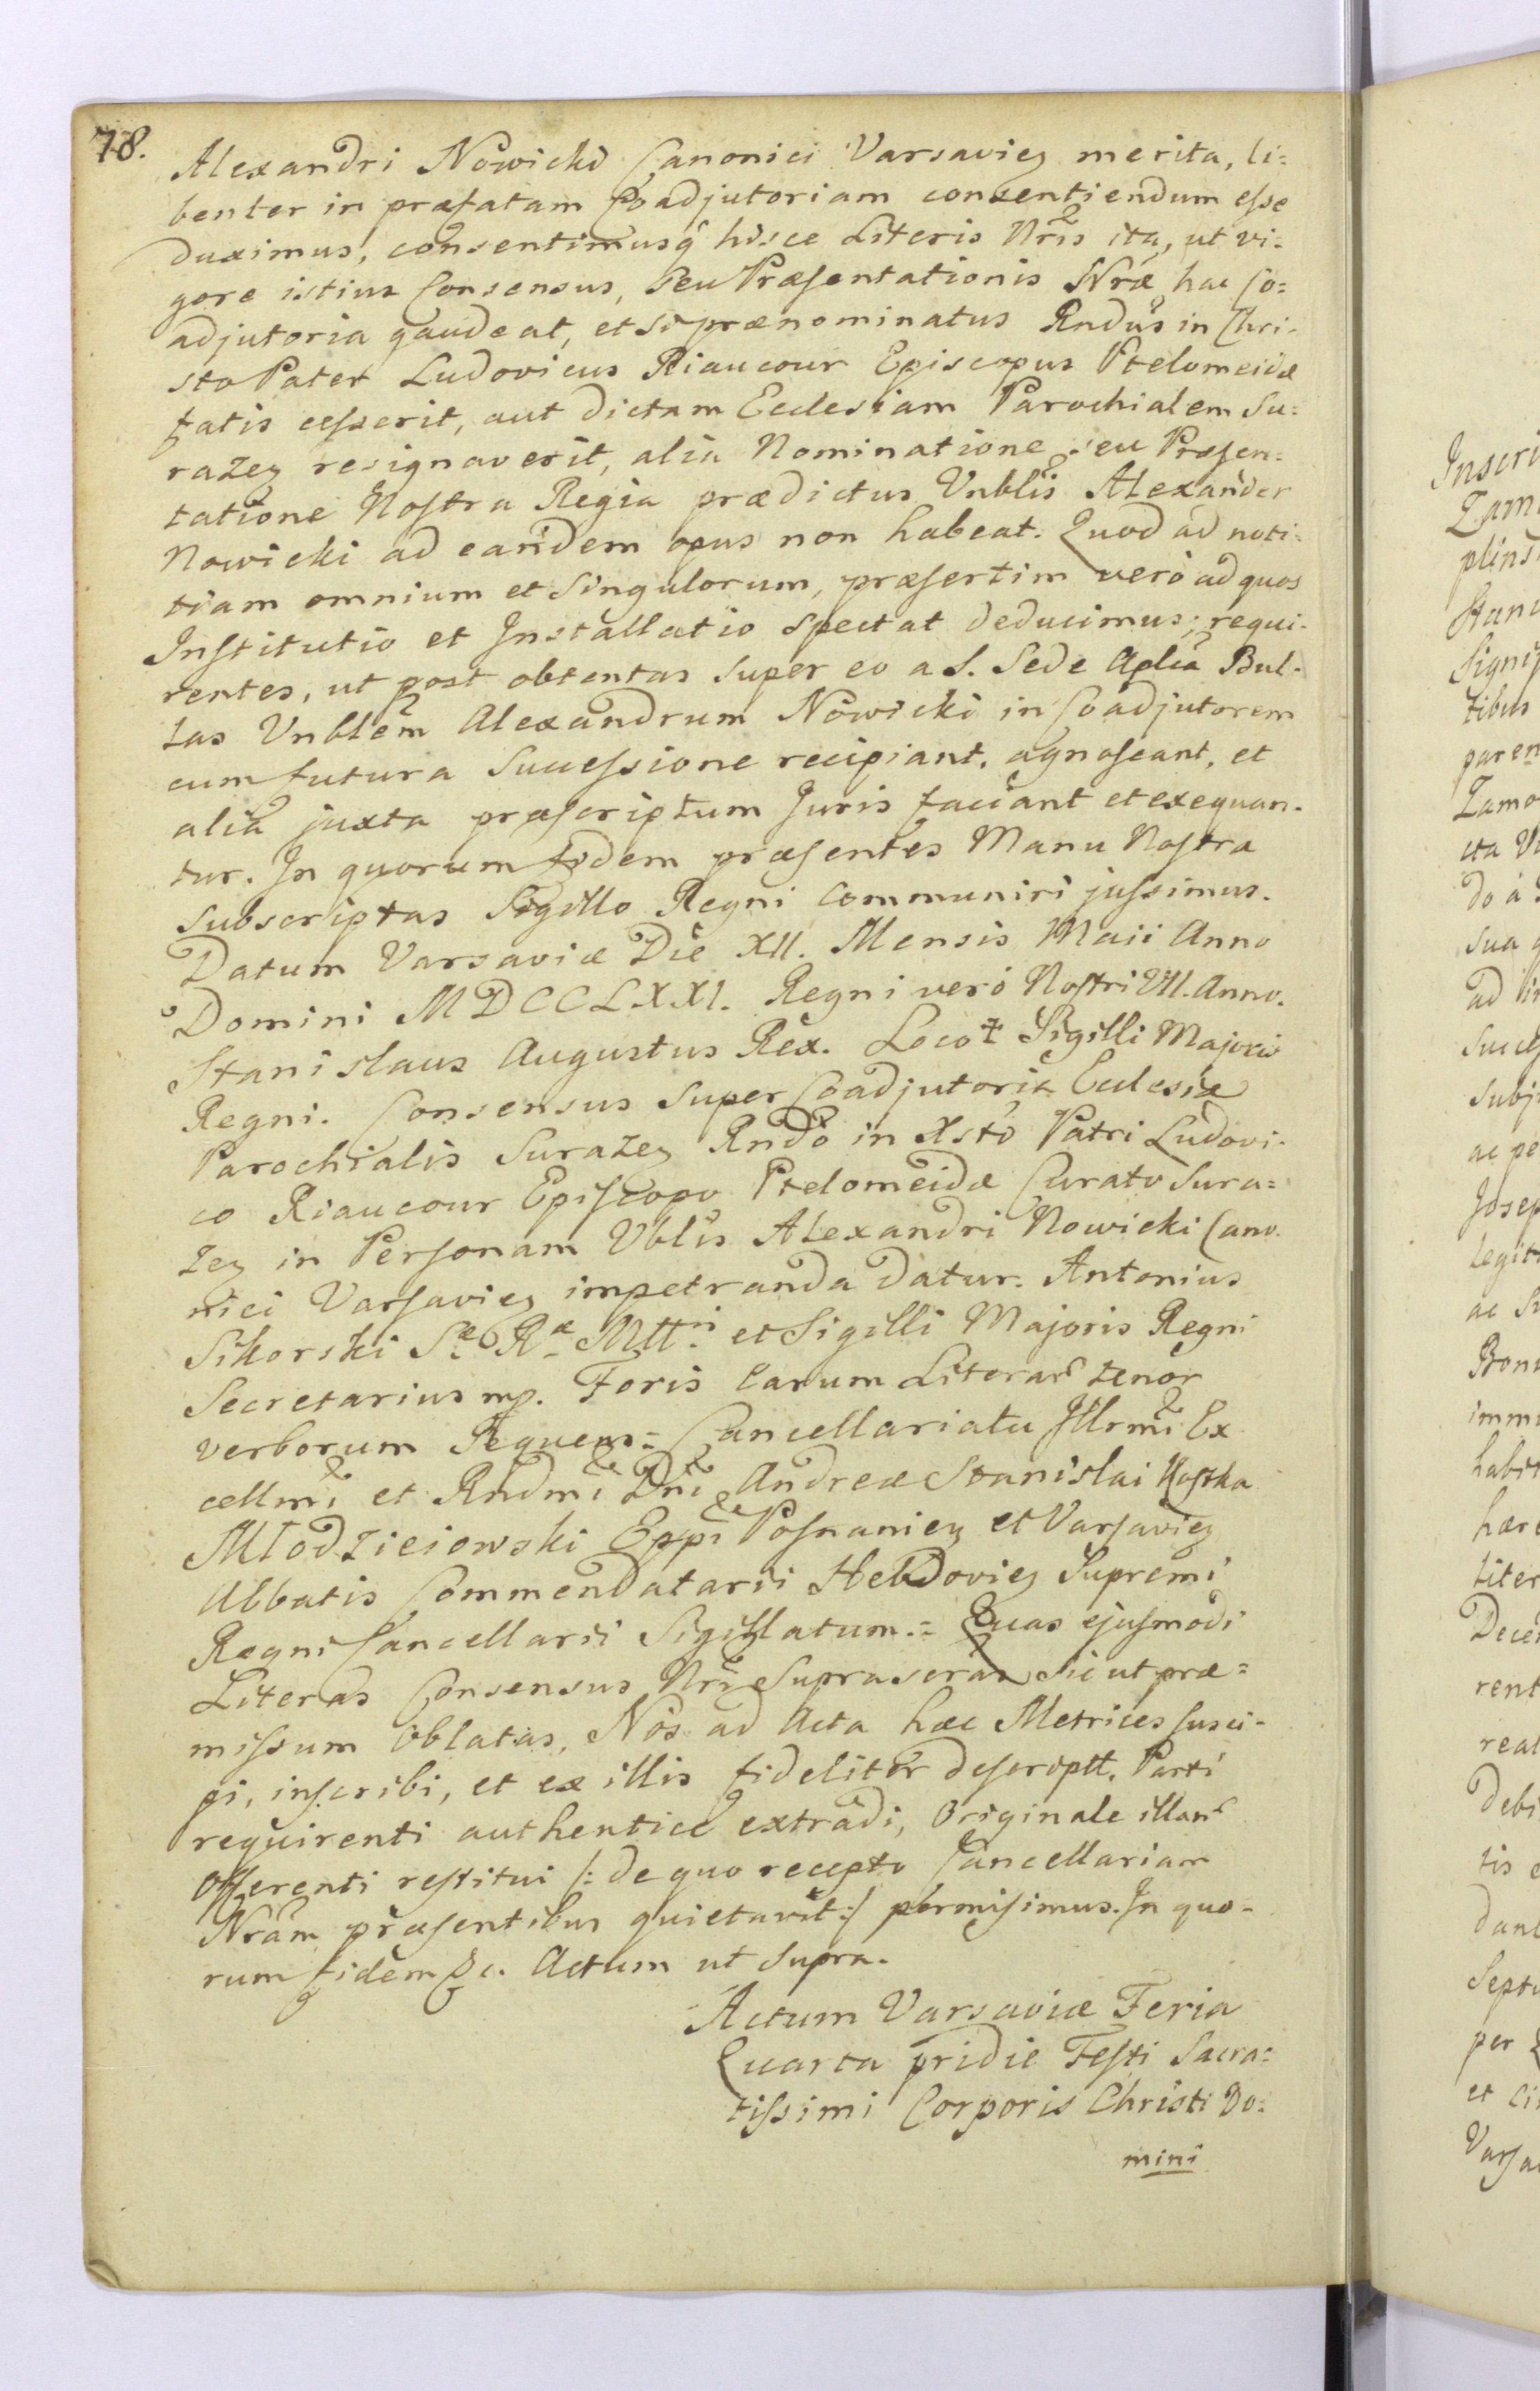 78.
Alexandri Nowicki Canonici Varsavien merita, li=
benter in præfatam Coadjutoriam consentiendum esse
duximus, consentimusq hisce Literis Nris ita, ut vi=
gore istius Consensus, seu Præsentationis Nræ hac Co=
adjutoria gaudeat, et si prænominatus Rndus in Chri-
sto Pater Ludovicus Riaucour Episcopus Ptelomeidæ
fatis cesserit, aut dictam Ecclesiam Parochialem Su=
razen resignaverit, alia Nominatione seu Præsen=
tatione Nostra Regia prædictus Vnblis Alexander
Nowicki ad eandem opus non habeat. Quod ad noti-
tiam omnium et singulorum, præsertim verò ad quos
Institutio et Installatio spectat deducimus; requi-
rentes, ut post obtentas super eo a S. Sede Aplica Bul-
las Vnblem Alexandrum Nowicki in Coadjutorem
cum futura Successione recipiant, agnoscant, et
alia juxta præscriptum Juris faciant et exequan-
tur. In quorum fidem præsentes Manu Nostra
subscriptas Sigillo Regni communiri jussimus.
Datum Varsaviæ Die XII. Mensis Maii Anno
Domini MDCCLXXI. Regni verò Nostri VII. Anno.
Stanislaus Augustus Rex. Loco Sigilli Majoris
Regni. Consensus super Coadjutoria Ecclesiæ
Parochialis Surazen Rndo in Xsto Patri Ludovi-
co Riaucour Episcopo Ptelomeidæ Curato Sura=
zen in Personam Vblis Alexandri Nowicki Cano-
nici Varsavien impetranda datur. Antonius
Sikorski Sæ Ræ Mttis et Sigilli Majoris Regni
Secretarius mp. Foris earum Literar tenor
verborum Sequens= Cancellariatu Illrmi Ex
cellmi et Rndmi Dni Andreæ Stanislai Kostka
Młodzieiowski Eppi Posnanien et Varsavien
Abbatis Commendatarii Hebdovien Supremi
Regni Cancellarii Sigillatum.= Quas ejusmodi
Literas Consensus Nri suprascras sic ut præ=
missum oblatas, Nos ad Acta hæc Metrices susci-
pi, inscribi, et ex illis fideliter descriptt. Parti
requirenti authentice extradi, Originale illar
Offerenti restitui /: de quo recepto Cancellariam
Nram præsentibus quietavit :/ permisimus. In quo-
rum fidem &c. Actum ut supra.
Actum Varsaviæ Feria
Quarta pridie Festi Sacra=
tissimi Corporis Christi Do=
mini
Inscri
Zam
plins
Stani
Signi
tibus
paren
Zamo
cta V
do a
sua
ad
Succes
subj
ac pe
Josep
legit
ac
Bon
immu
habi
hære
liter
Dece
rent
real
debi
tis
dant
Septu
per
et ci
Varsa